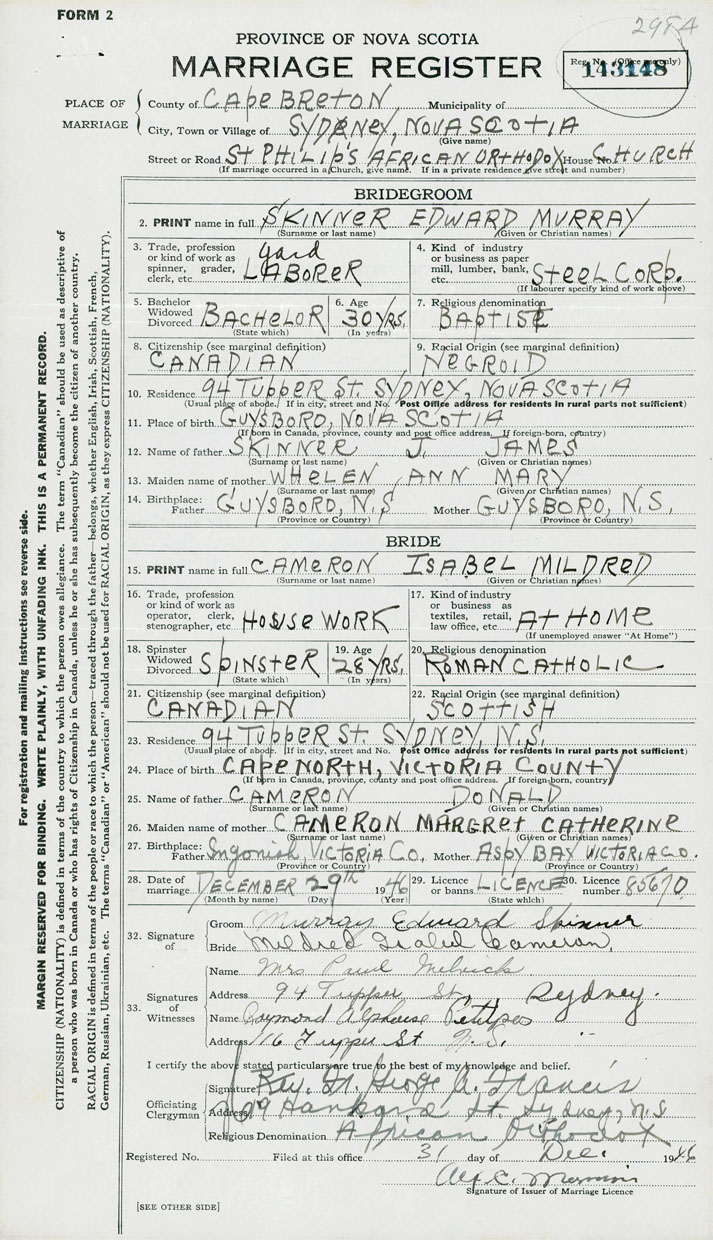 FORM 2
2984
PROVINCE OF NOVA SCOTIA
MARRIAGE REGISTER
Reg. No. (Office use only)
143148
PLACE OF MARRIAGE
County of CApe BReTON Municipality of
City, Town or Village of SYDNey, NOVA SCOTIA
(Give name)
Street or Road ST PHILIP'S AFRICAN ORTHODOX House No. CHURCH
(If marriage occurred in a Church, give name. If in a private residence give street and number)
BRIDEGROOM
2. PRINT name in full SKINNER EDWARD MURRAY
(Surname or last name) (Given or Christian names)
3. Trade, profession or kind of work as spinner, grader, clerk, etc. yard LABOReR
4. Kind of industry or business as paper mill, lumber, bank, etc. STeeL CORp.
(If labourer specify kind of work above)
5. Bachelor Widowed Divorced BACHeLOR
(State which)
6. Age 30 YRS.
(In years)
7. Religious denomination BAPTIST
8. Citizenship (see marginal definition) CANADIAN
9. Racial Origin (see marginal definition) NeGROID
10. Residence 94 TUPPER ST. SYDNEY, NOVA SCOTIA
(Usual place of abode. If in city, street and No. Post Office address for residents in rural parts not sufficient)
11. Place of birth GUYSBORO, NOVA SCOTIA
(If born in Canada, province, county and post office address. If foreign-born, country)
12. Name of father SKINNER J. JAMES
(Surname or last name) (Given or Christian names)
13. Maiden name of mother WHELEN, ANN MARY
(Surname or last name) (Given or Christian names)
14. Birthplace: Father GUYSBORO, N.S Mother GUYSBORO, N.S.
(Province or Country) (Province or Country)
BRIDE
15. PRINT name in full CAMERON ISABEL MILDRED
(Surname or last name) (Given or Christian names)
16. Trade, profession or kind of work as operator, clerk, stenographer, etc. HOUSE WORK
17. Kind of industry or business as textiles, retail, law office, etc AT HOME
(If unemployed answer "At Home")
18. Spinster Widowed Divorced SPINSTER
(State which)
19. Age 28 YRS.
(In years)
20. Religious denomination ROMAN CATHOLIC
21. Citizenship (see marginal definition) CANADIAN
22. Racial Origin (see marginal definition) SCOTTISH
23. Residence 94 TUPPER ST. SYDNEY, N.S.
(Usual place of abode. If in city, street and No. Post Office address for residents in rural parts not sufficient)
24. Place of birth CAPE NORTH, VICTORIA COUNTY
(If born in Canada, province, county and post office address. If foreign-born, country)
25. Name of father CAMERON DONALD
(Surname or last name) (Given or Christian names)
26. Maiden name of mother CAMERON MARGRET CATHERINE
(Surname or last name) (Given or Christian names)
27. Birthplace: Father Ingonish, VICTORIA Co. Mother ASPY BAY VICTORIA CO.
(Province or Country) (Province or Country)
28. Date of marriage DECEMBER 29th 1946
(Month by name) (Day) (Year)
29. Licence or banns LICENCE
(State which)
30. Licence number 85670
32. Signature of
Groom Murray Edward Skinner
Bride Mildred Isabel Cameron.
33. Signatures of Witnesses
Name Mrs Paul
Address 94 Tupper St., Sydney.
Name Raymond Alphouse
Address 116 Tupper St N.S.
I certify the above stated particulars are true to the best of my knowledge and belief.
Officiating Clergyman
Signature Rev. Dr. George A. Francis
Address Hankard St. Sydney, N.S
Religious Denomination African Orthodox
Registered No. Filed at this office 31 day of Dec. 1946
Signature of Issuer of Marriage Licence
[SEE OTHER SIDE]
For registration and mailing instructions see reverse side.
MARGIN RESERVED FOR BINDING. WRITE PLAINLY, WITH UNFADING INK. THIS IS A PERMANENT RECORD.
CITIZENSHIP (NATIONALITY) is defined in terms of the country to which the person owes allegiance. The term "Canadian" should be used as descriptive of
a person who was born in Canada or who has rights of Citizenship in Canada, unless he or she has subsequently become the citizen of another country.
RACIAL ORIGIN is defined in terms of the people or race to which the person—traced through the father—belongs, whether English, Irish, Scottish, French,
German, Russian, Ukrainian, etc. The terms "Canadian" or "American" should not be used for RACIAL ORIGIN, as they express CITIZENSHIP (NATIONALITY).